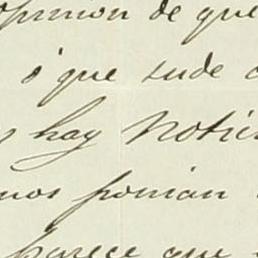 opinion de que
ó que sude
hay Notici
nos ponian
parece que